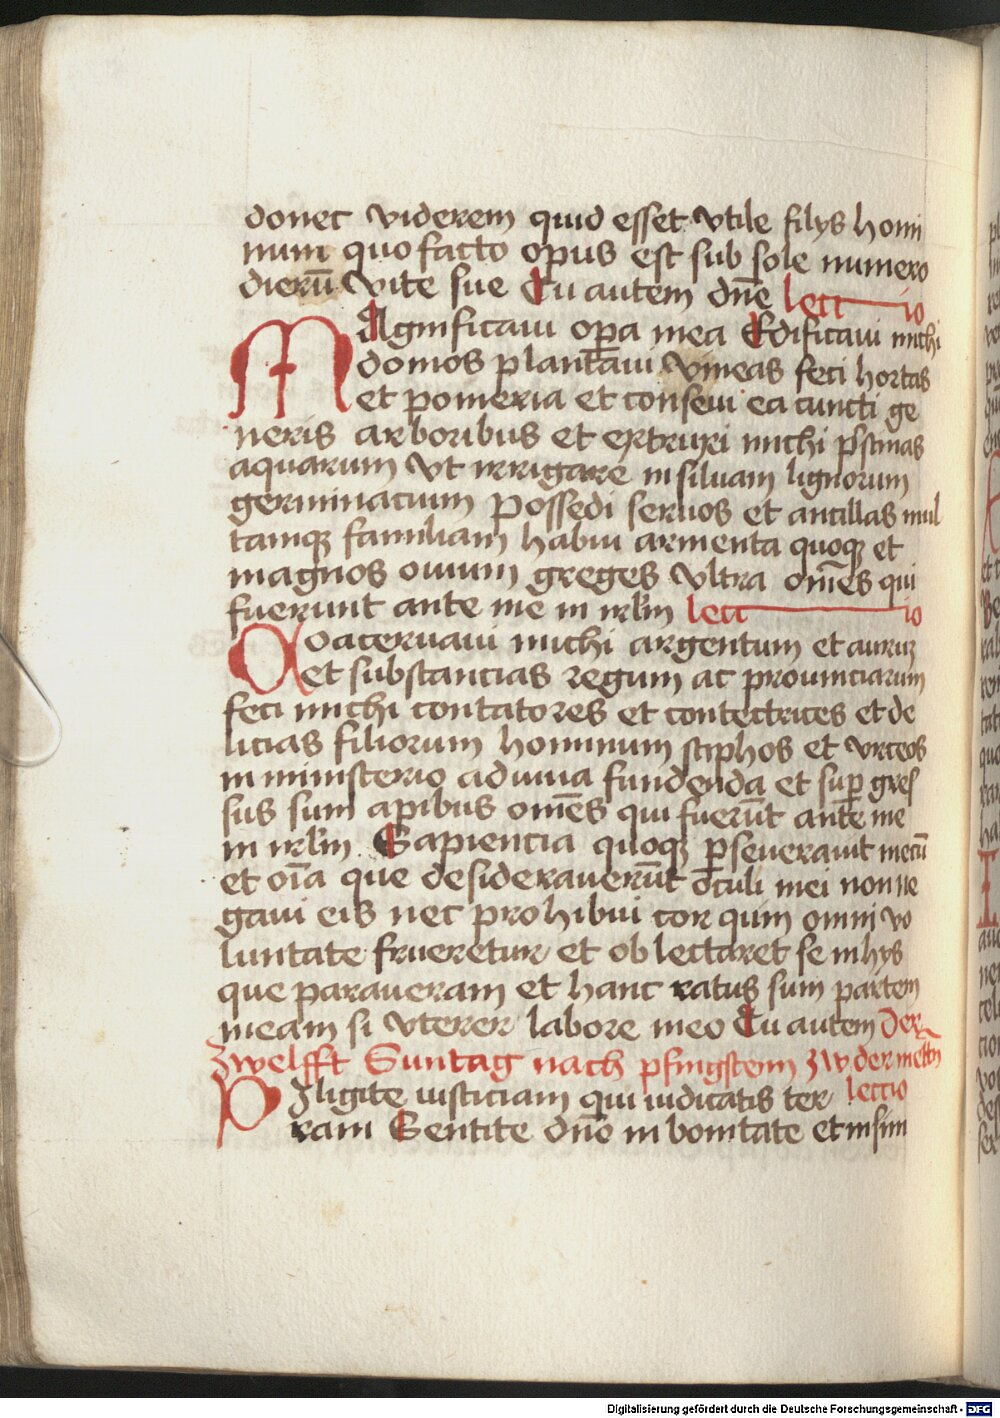 donec viderem quid esset vtile filys homi
num quo facto opus est sub sole numero
dierū vite sue Tu autem dn̄e lectio
MAgnificaui opa mea Edificaui michi
domos plantaui vineas feci hortas
et pomeria et conseui ea cuncti ge
neris arboribus et extruxi michi pscinas
aquarum vt irrigare in siluam lignorum
germinacium Possedi seruos et ancillas mul
tamqz familiam habui armenta quoqz et
magnos ouium greges vltra om̄es qui
fuerunt ante me in irlm lectio
Coaceruaui michi argentum et auruz
et substancias regum ac prouinciarum
feci michi contatores et contectrices et de
licias filiorum hominum sciphos et vrceos
in ministerio ad vina fundenda et sup gres
sus sum apibus om̄es qui fuerūt ante me
in irlm Sapiencia quoqz pseuerauit mecū
et oīa que desiderauerūt oculi mei non ne
gaui eis nec prohibui cor quin omni vo
luntate frueretur et oblectaret se in hys
que paraueram et hanc ratus sum partem
meam si vterer labore meo Tu autem Der
zwelfft Suntag nach pfingstenn zw der mettn
DIligite iusticiam qui iudicatis ter lectio
ram Sentite dn̄o in bonitate et in sim
Digitalisierung gefördert durch die Deutsche Forschungsgemeinschaft - DFG